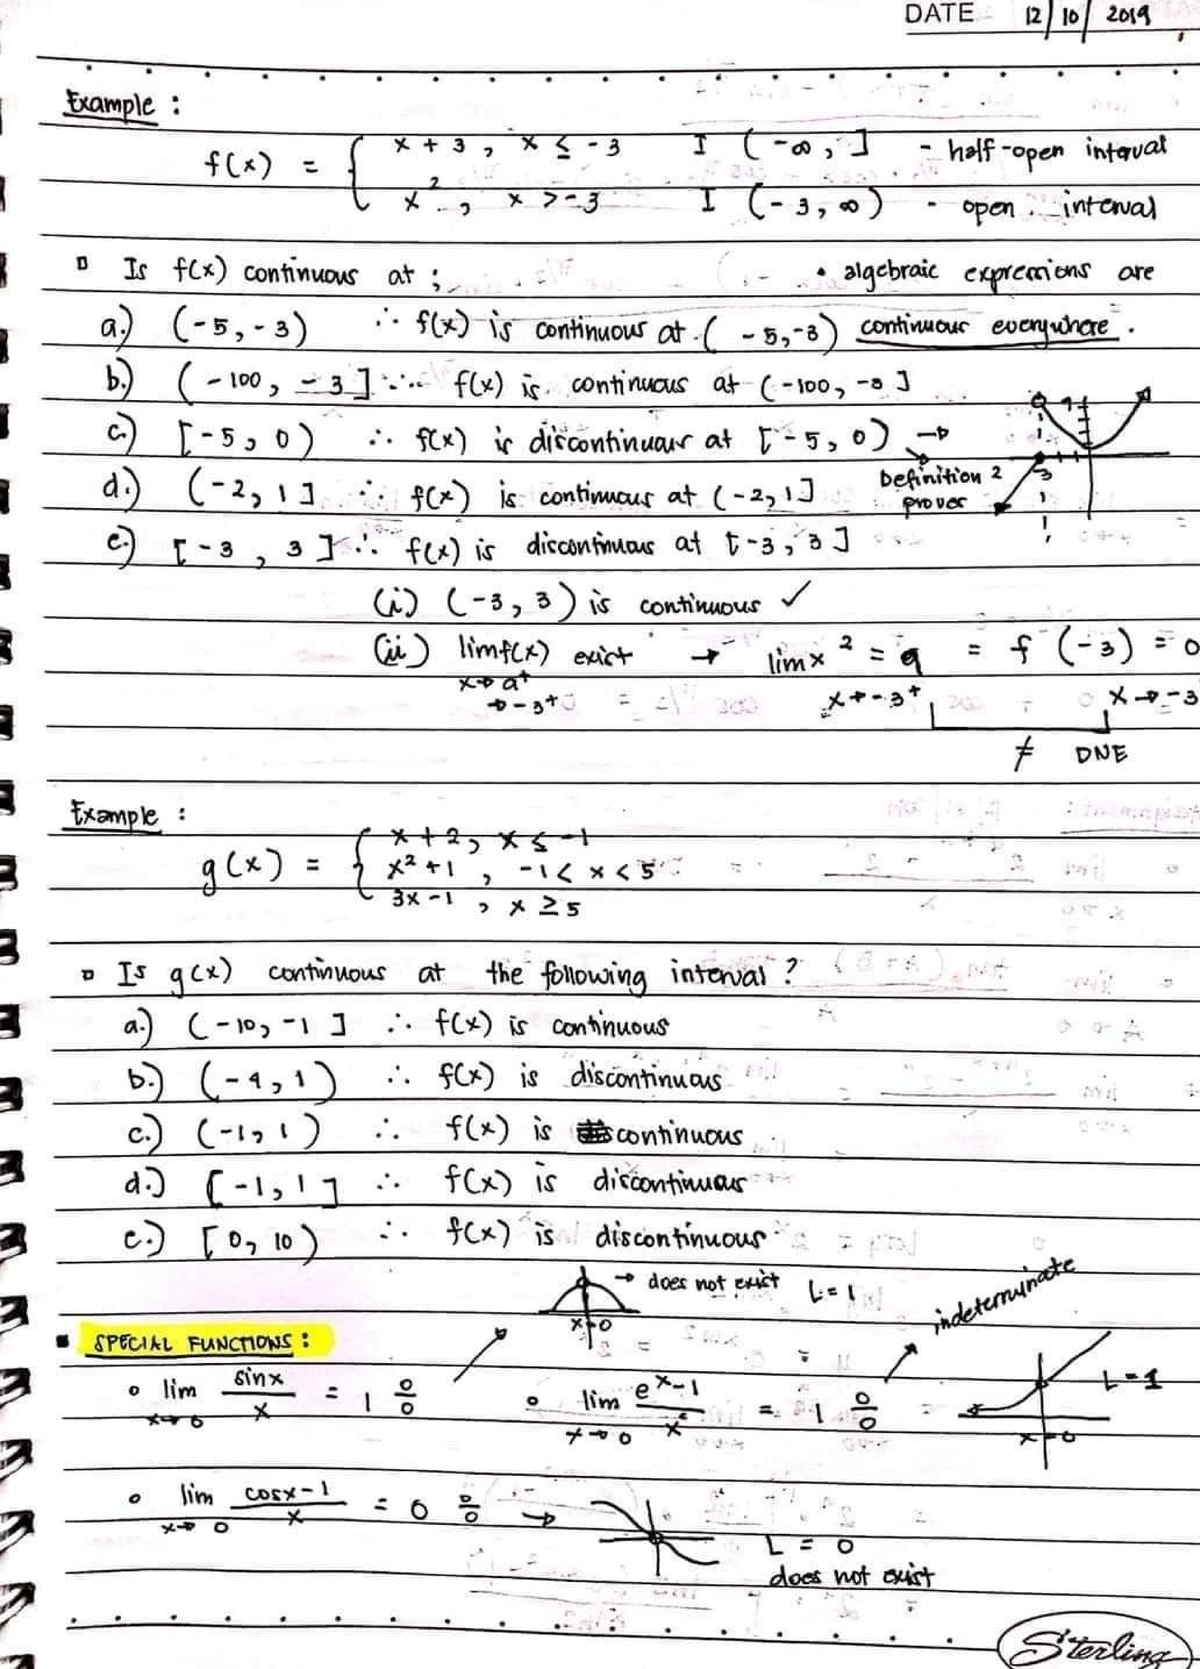 DATE 12/10/2019
Example :
f(x) = { x + 3 , x ≤ -3 I (-∞, ] - half-open interval
x² , x > -3 I (-3, ∞) - open interval
Is f(x) continuous at ; • algebraic expressions are
a.) (-5, -3) ∴ f(x) is continuous at (-5, -3) continuous everywhere.
b.) (-100, -3] ∴ f(x) is continuous at (-100, -3]
c.) [-5, 0) ∴ f(x) is discontinuous at [-5, 0) →
Definition 2
proves
3
d.) (-2, 1] ∴ f(x) is continuous at (-2, 1]
e.) [-3, 3] ∴ f(x) is discontinuous at [-3, 3]
(i) (-3, 3) is continuous ✓
(ii) lim f(x) exist → lim x² = 9 = f (-3) = 0
x→a⁺ x→-3⁺ x→-3
→-3⁺
≠ DNE
Example :
g(x) = { x + 2, x ≤ -1
x² + 1 , -1 < x < 5
3x - 1 , x ≥ 5
Is g(x) continuous at the following interval ?
a.) (-10, -1] ∴ f(x) is continuous
b.) (-4, 1) ∴ f(x) is discontinuous
c.) (-1, 1) ∴ f(x) is continuous
d.) [-1, 1] ∴ f(x) is discontinuous
e.) [0, 10) ∴ f(x) is discontinuous
→ does not exist L = 1
x→0
indeterminate
SPECIAL FUNCTIONS :
lim sinx/x = 1 0/0
x→0
lim eˣ-1/x = 1 0/0
x→0
L = 1
x→0
lim cosx-1/x = 0 0/0 →
x→0
L = 0
does not exist
Sterling